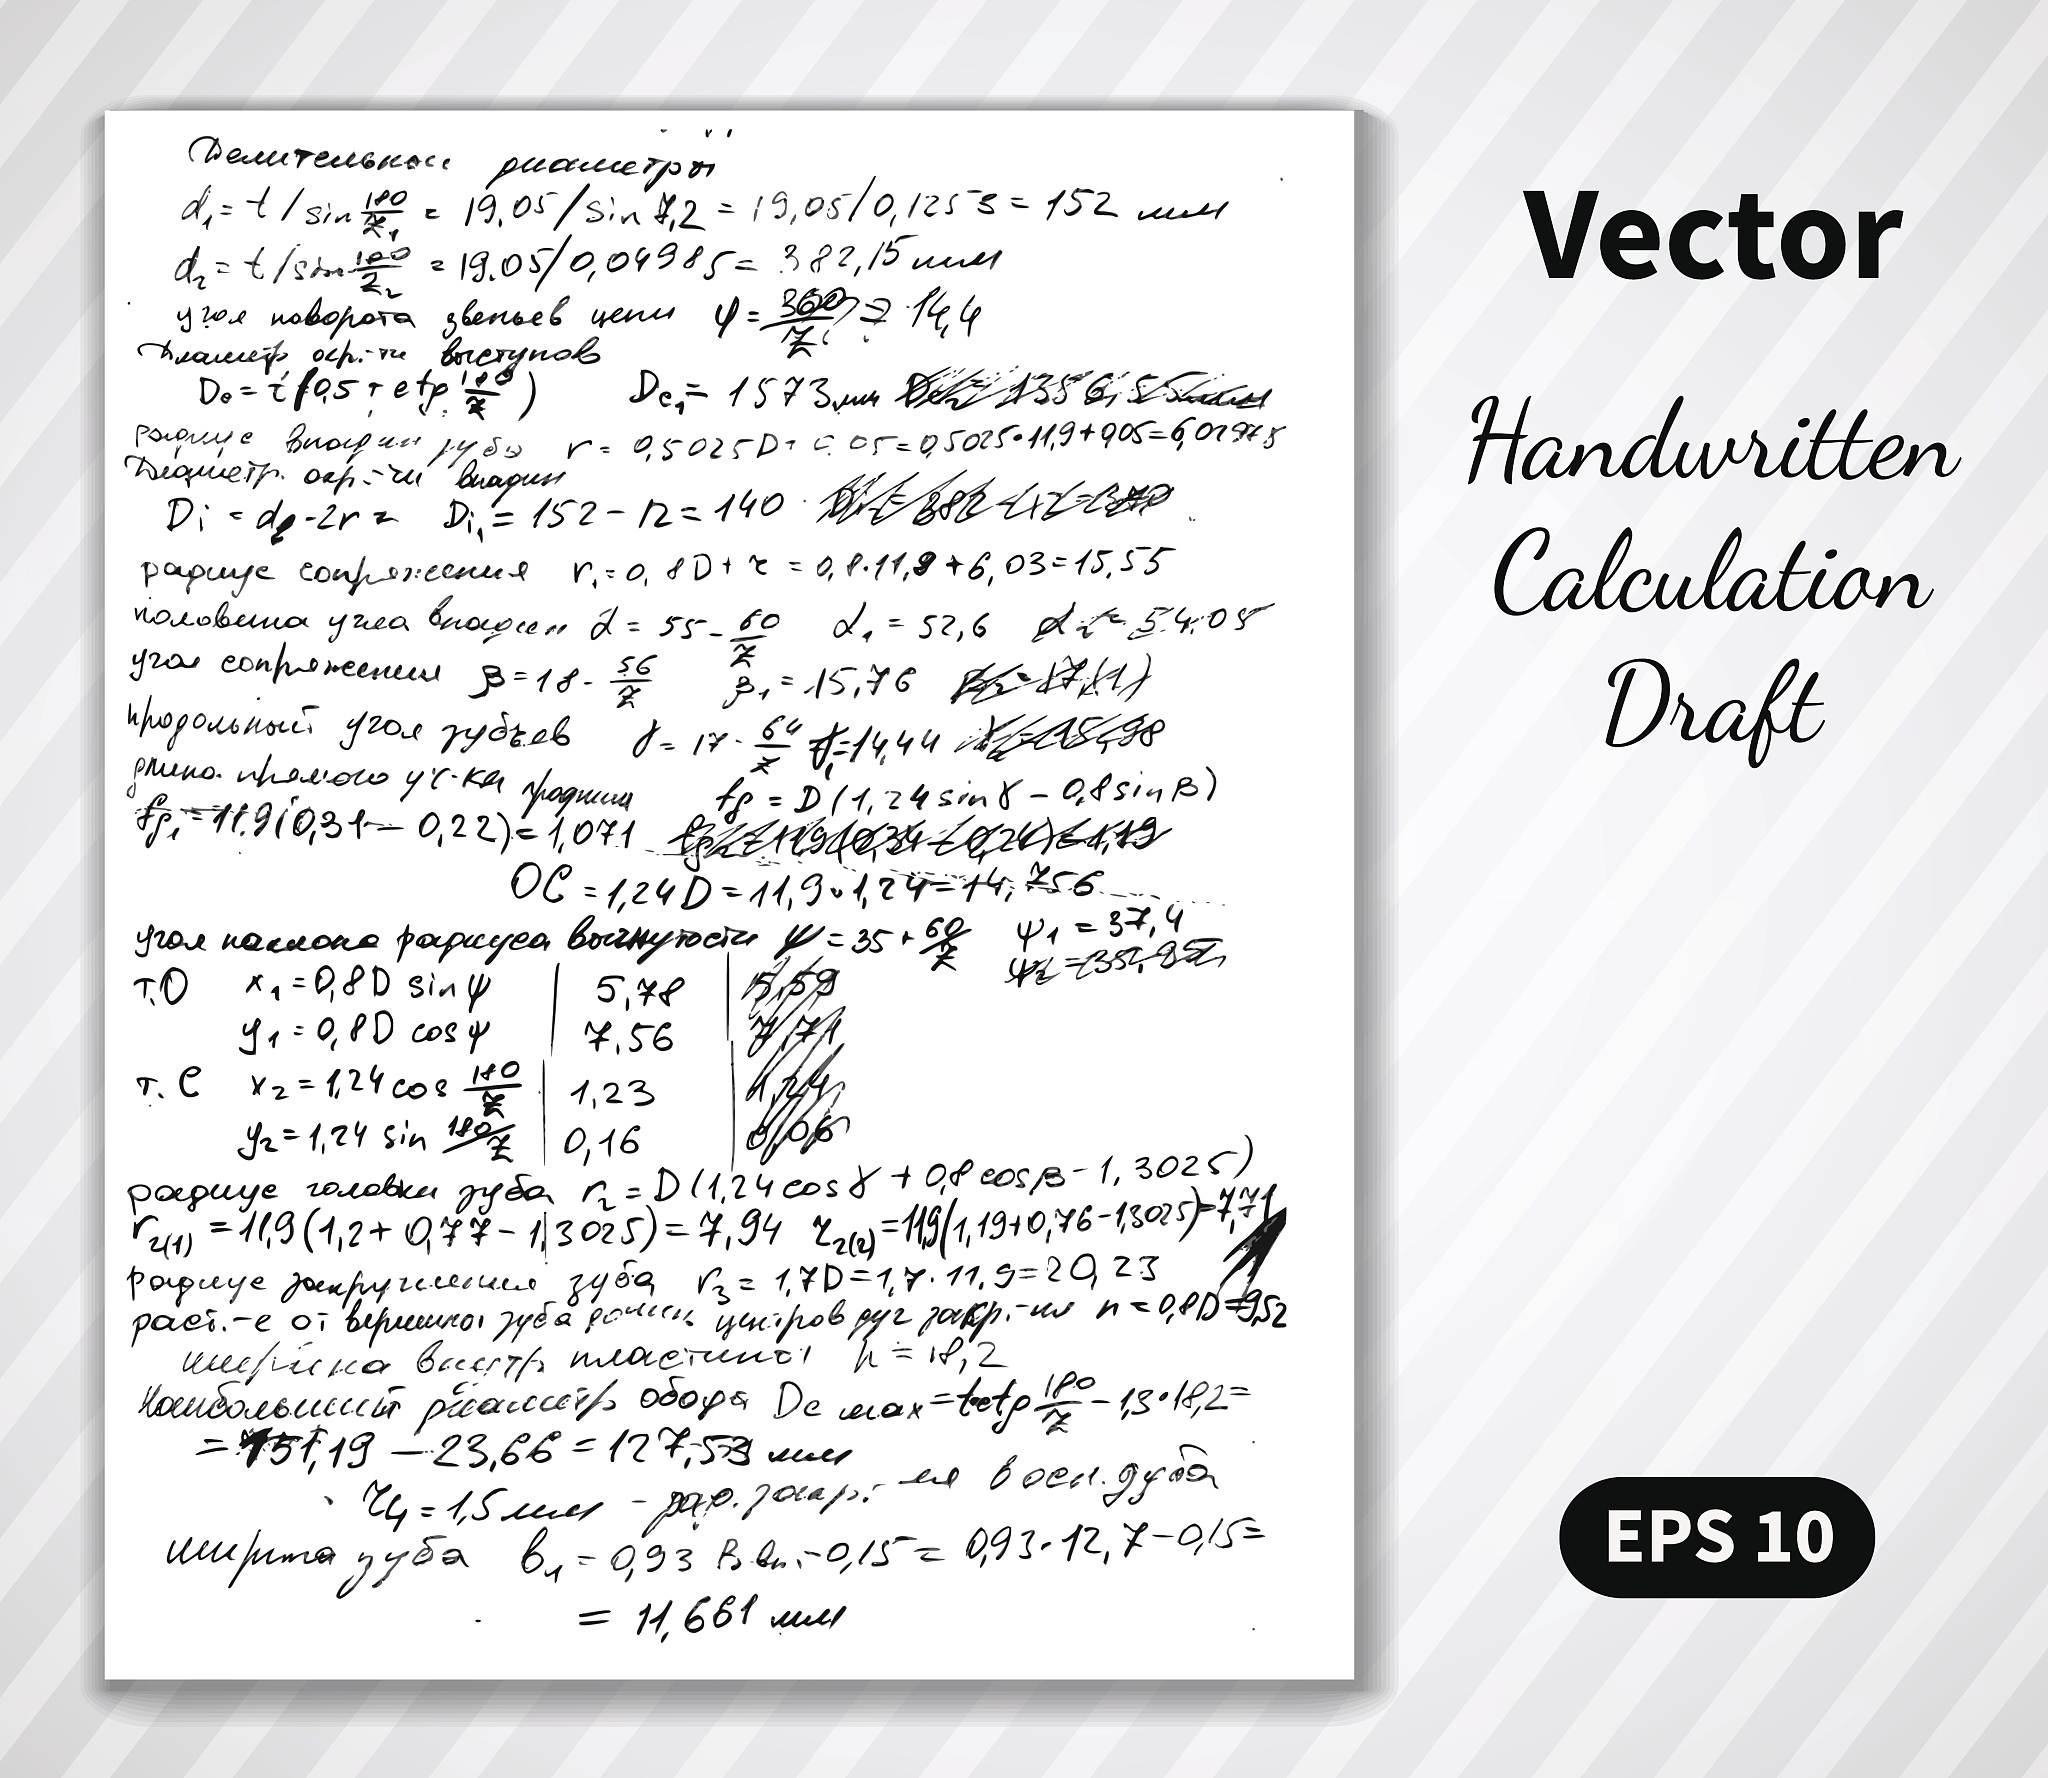 Делительные диаметры
d₁ = t / sin 180/z₁ = 19,05 / sin 7,2 = 19,05 / 0,1253 = 152 мм
d₂ = t / sin 180/z₂ = 19.05 / 0,04985 = 382,15 мм
угол поворота звеньев цепи φ = 360/z = 14,4
Диаметр окр.-ти выступов
De = t(0,5 + ctg 180/z) De₁ = 1573 мм
радиус впадин зуба r = 0,5025D + 0.05 = 0,5025·11,9 + 0,05 = 6,02975
Диаметр. окр.-ти впадин
Di = d₁ - 2r = Di₁ = 152 - 12 = 140
радиус сопряжения r₁ = 0,8D + r = 0,8·11,9 + 6,03 = 15,55
половина угла впадин α = 55 - 60/z α₁ = 52,6 α₂ = 54.05
угол сопряжения β = 18 - 56/z β₁ = 15,76
продольный угол зубьев γ = 17 - 64/z γ₁ = 14,44 γ₂ = 15,98
длина прямого уч-ка профиля fg = D(1,24 sin γ - 0,8 sin β)
fg₁ = 11.9(0,31 - 0,22) = 1,071 fg₂ = 11,9(0,34 - 0,24) = 1,19
OC = 1,24D = 11,9·1,24 = 14,756
угол наклона радиуса вогнутости ψ = 35 + 60/z ψ₁ = 37,4
т.O x₁ = 0,8D sin ψ 5,78 5,59
y₁ = 0,8D cos ψ 7,56 7,71
т. C x₂ = 1,24 cos 180/z 1,23 1,24
y₂ = 1,24 sin 180/z 0,16 0,06
радиус головки зуба r₂ = D(1,24 cos γ + 0,8 cos β - 1,3025)
r₂₍₁₎ = 11,9(1,2 + 0,77 - 1,3025) = 7,94 r₂₍₂₎ = 11,9(1,19 + 0,76 - 1,3025) = 7,71
радиус закругления зуба r₃ = 1,7D = 1,7·11,9 = 20,23
раст.-е от вершины зуба центров дуг закр.-ия h = 0,8D = 9,52
ширина пластины h = 18,2
Наибольший диаметр обода Dc max = t ctg 180/z - 1,3·18,2 =
= 151,19 - 23,66 = 127,53 мм
r₄ = 1,5 мм - рад. закр.-ия в осн. зуба
ширина зуба b₁ = 0,93 Bвн. - 0,15 = 0,93·12,7 - 0,15 =
= 11,661 мм
Vector
Handwritten
Calculation
Draft
EPS 10